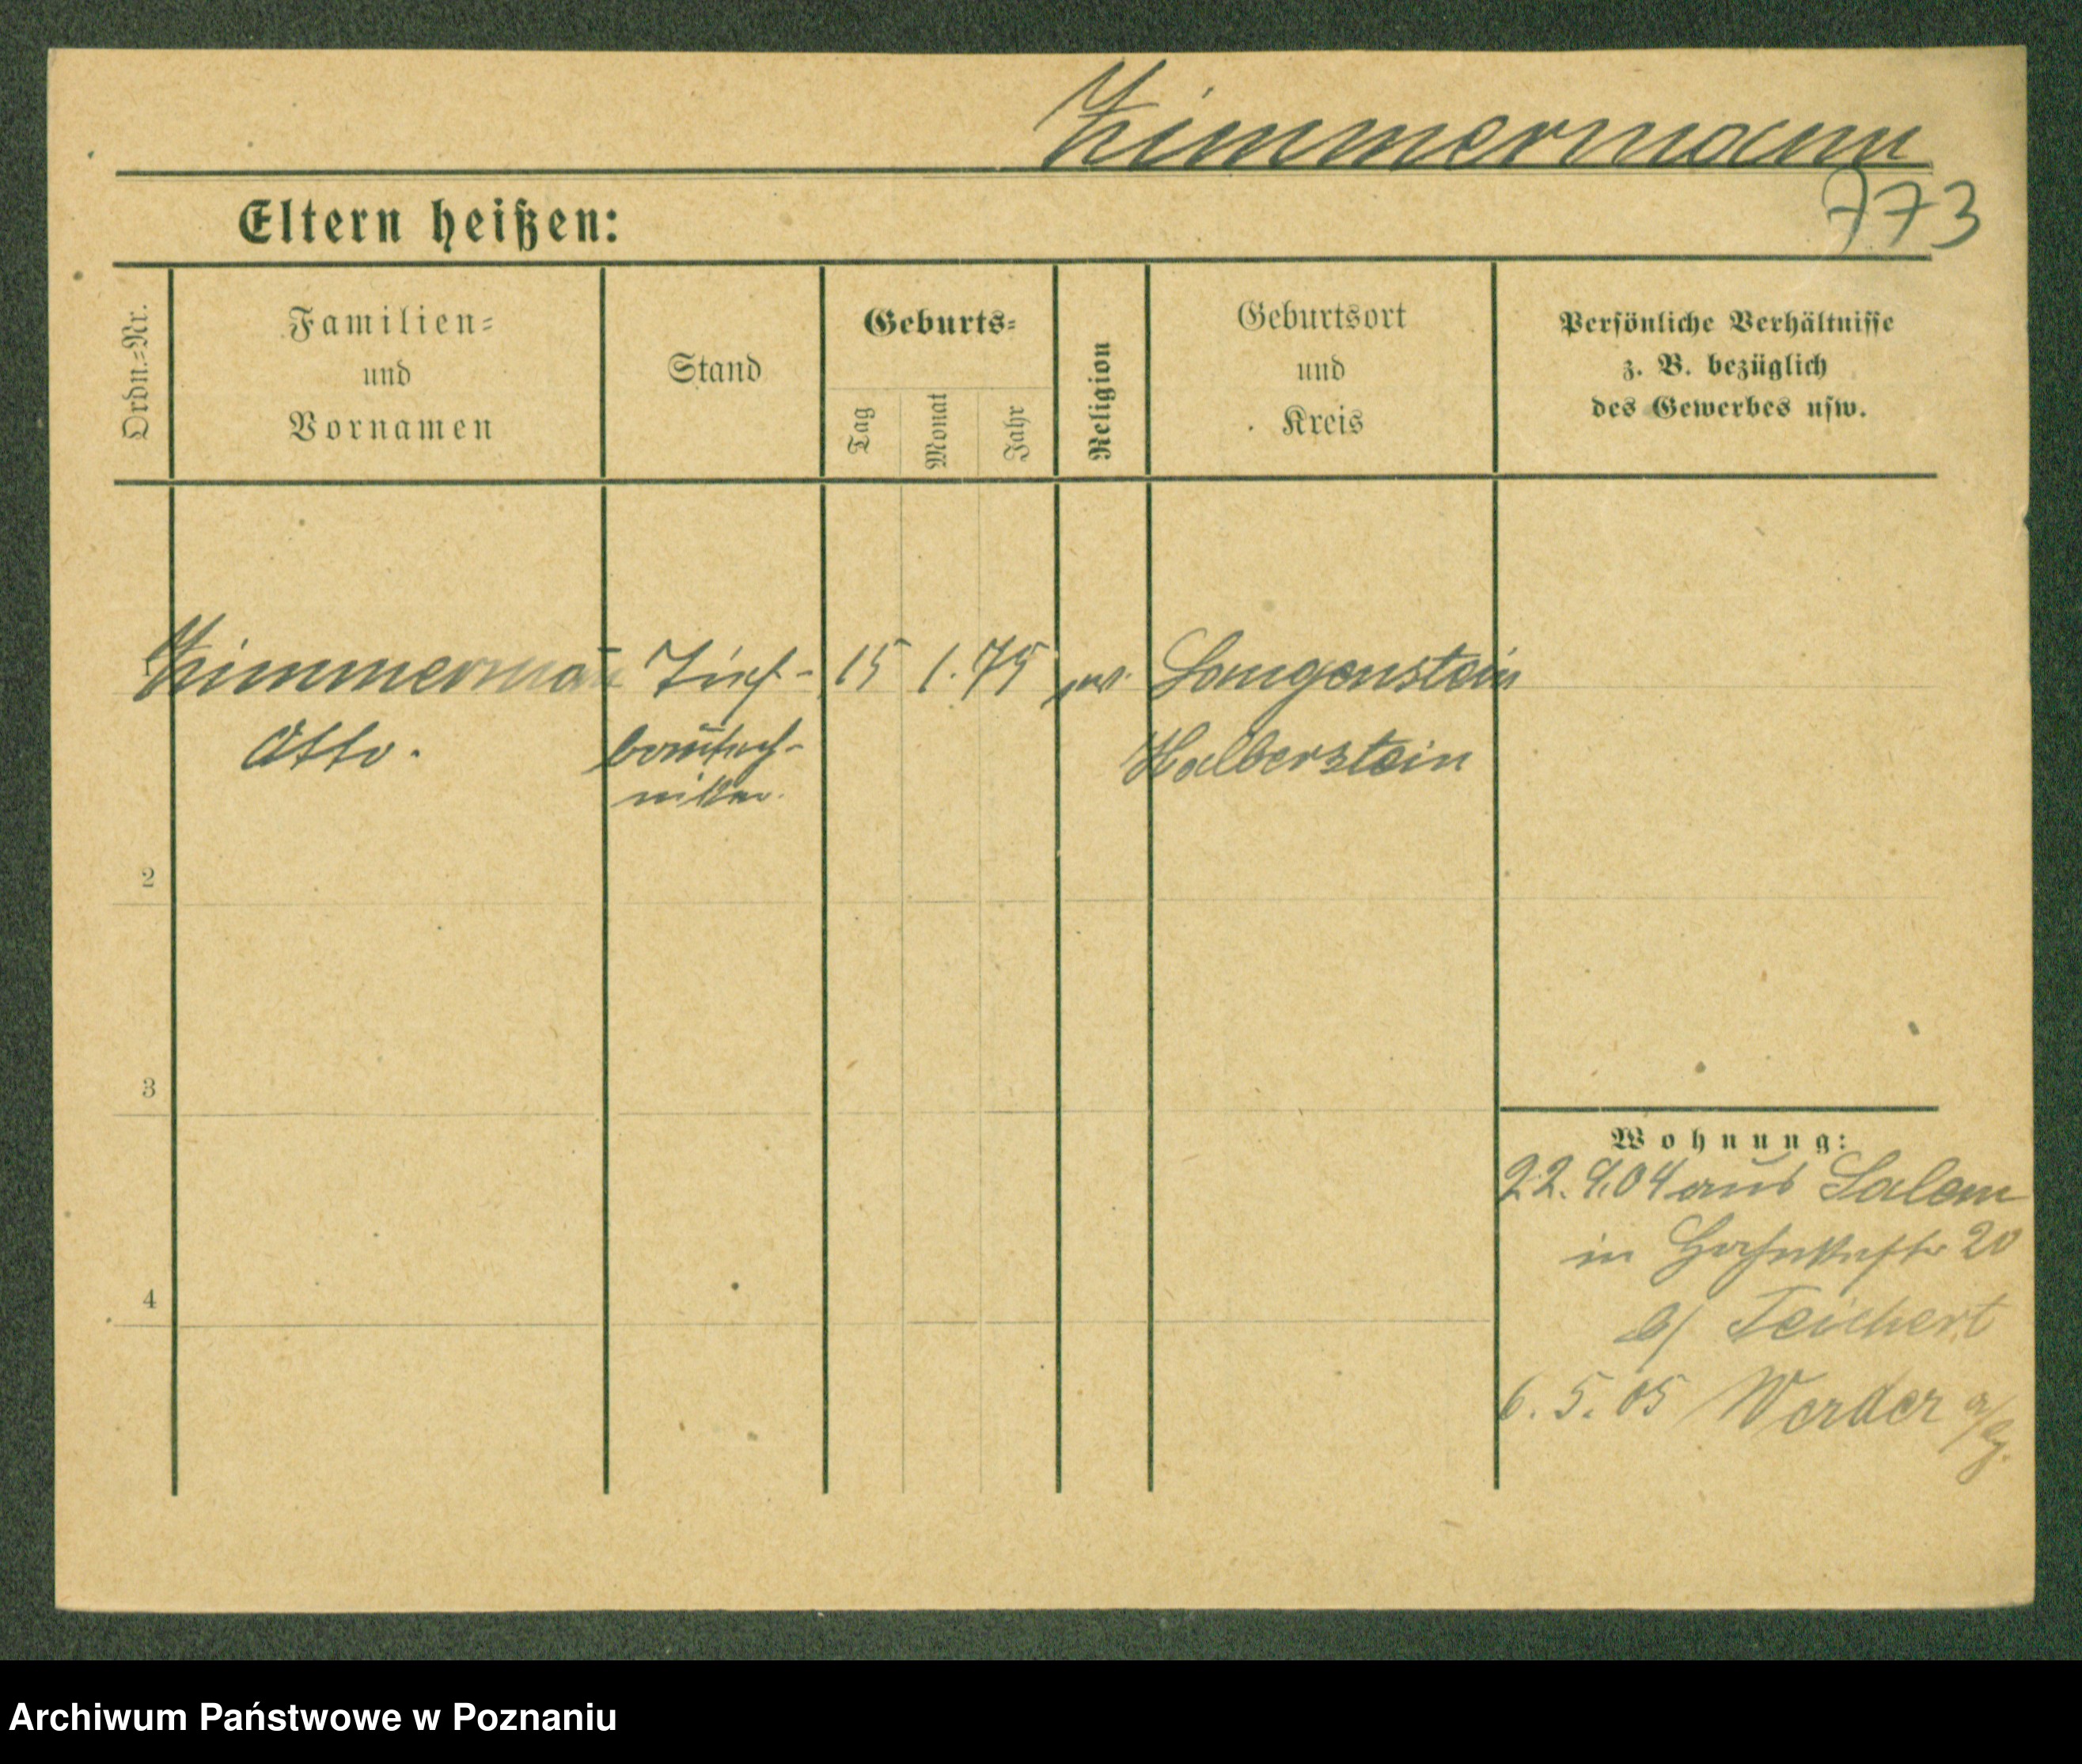 Zimmermann
773
Eltern heißen:
Ordn.=Nr.
Familien=
und
Vornamen
Stand
Geburts=
Tag
Monat
Jahr
Religion
Geburtsort
und
Kreis
Persönliche Verhältnisse
z. B. bezüglich
des Gewerbes usw.
Zimmermann Tief- 15 1. 75 ev. Langenstein
Otto. bautech- Halberstein
niker.
2
3
4
Wohnung:
22. 9. 04 aus Salem
in 20
b/ Teichert
6. 5. 05 Werder a/
Archiwum Państwowe w Poznaniu